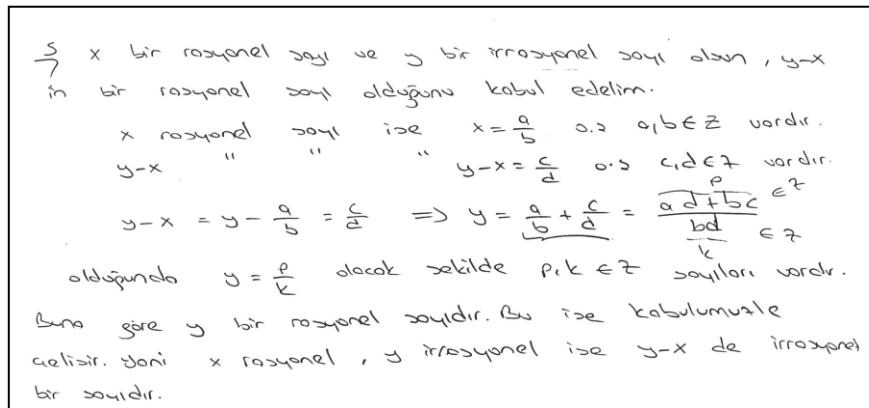 5/ x bir rasyonel sayı ve y bir irrasyonel sayı olsun, y-x
in bir rasyonel sayı olduğunu kabul edelim.
x rasyonel sayı ise x = a/b o.ş a,b ∈ Z vardır.
y-x " " " y-x = c/d o.ş c,d ∈ Z vardır.
y-x = y - a/b = c/d ⇒ y = a/b + c/d = ad+bc / bd p ∈ Z k ∈ Z
olduğunda y = p/k olacak şekilde p,k ∈ Z sayıları vardır.
Buna göre y bir rasyonel sayıdır. Bu ise kabulumuzle
çelişir. Yani x rasyonel, y irrasyonel ise y-x de irrasyonel
bir sayıdır.